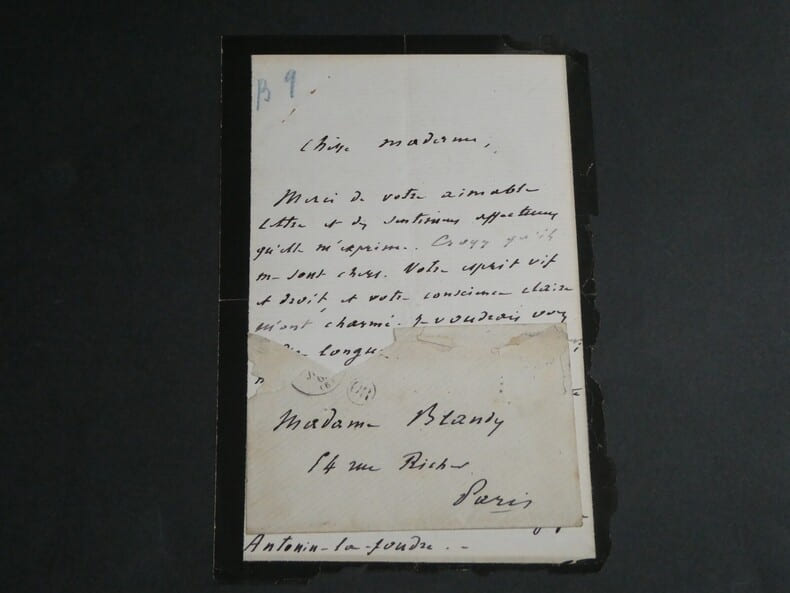 B 9
Chère madame,
Merci de votre aimable
lettre et des sentimens affectueux
qu'elle m'exprime. Croyez qu'ils
me sont chers. Votre esprit vif
et droit et votre conscience claire
m'ont charmé. Je voudrais vous
longue
OR
Madame Blandy
54 rue Richer
Paris
Antonin-la-foudre. --